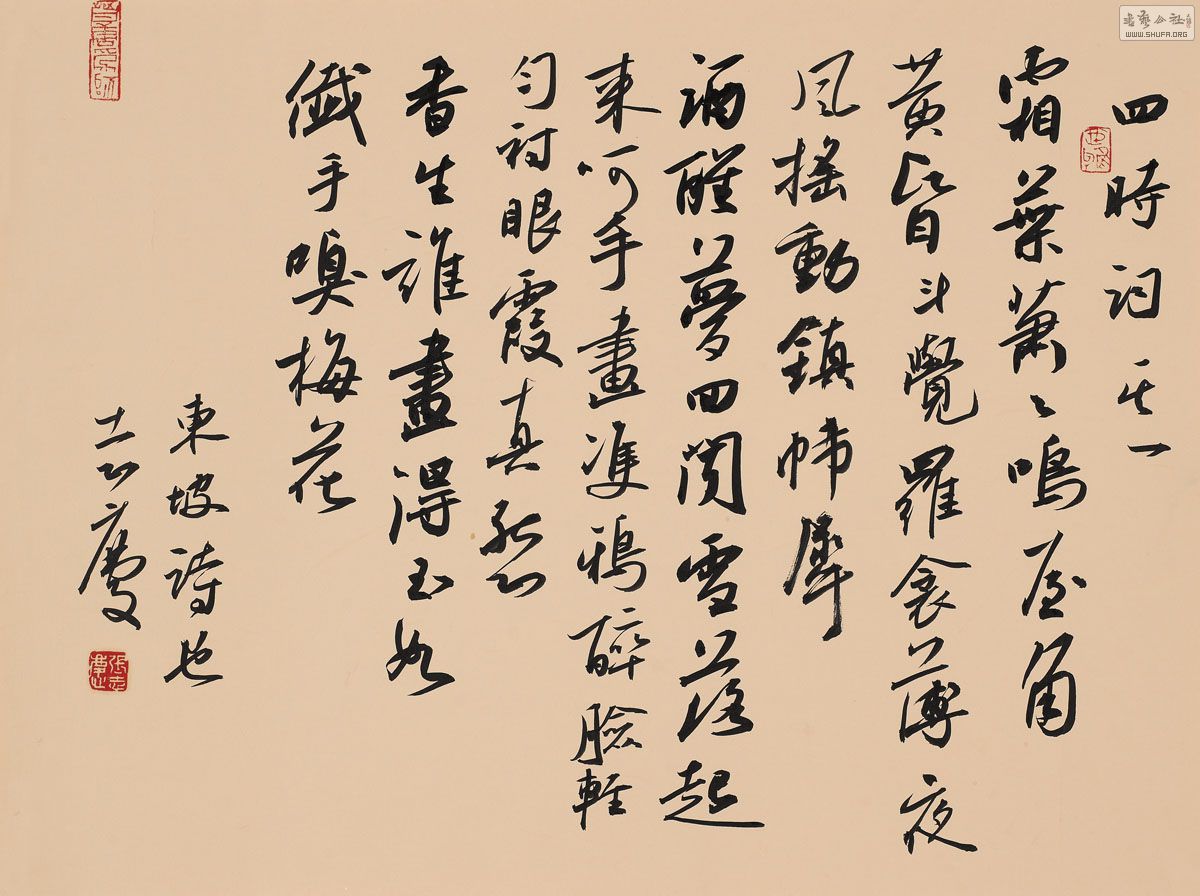 四時詞其一
霜葉蕭々鳴屋角
黃昏斗覺羅衾薄夜
風搖動鎮幃犀
酒醒夢回聞雪落起
來呵手畫雙鴉醉臉輕
勻衬眼霞真態
香生誰畫得玉如
纖手嗅梅花
東坡詩也
志慶
張志慶
書藝公社
WWW.SHUFA.ORG